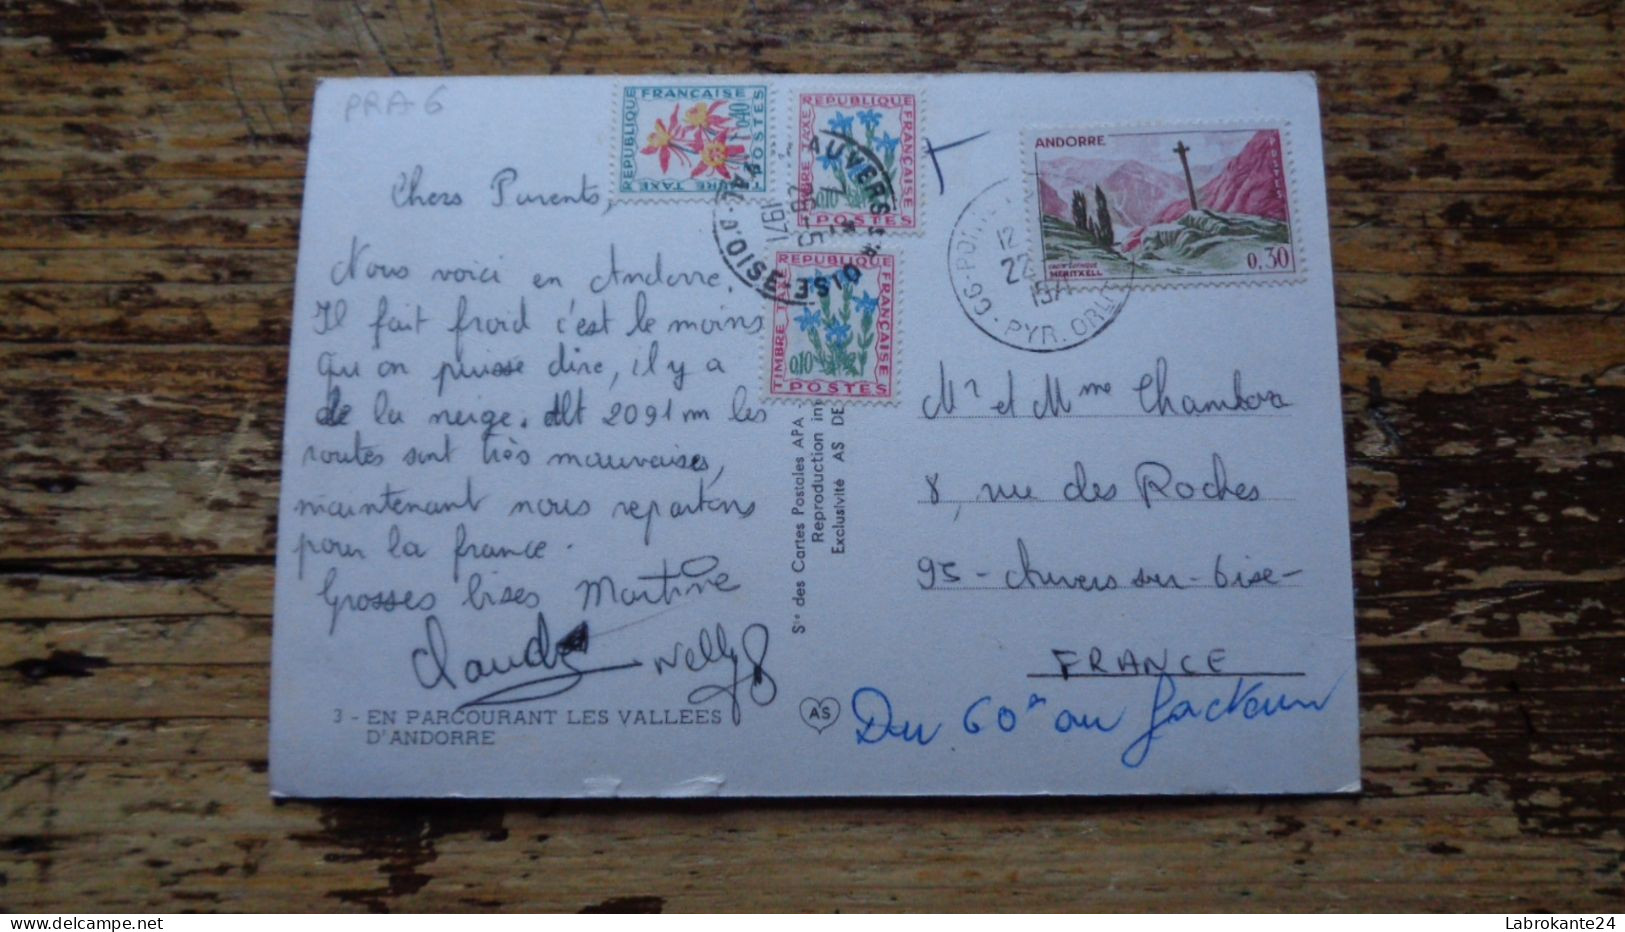 PRA6
Chers Parents,
Nous voici en Andorre.
Il fait froid c'est le moins
qu'on puisse dire, il y a
de la neige. Alt 2091 m les
routes sont très mauvaises,
maintenant nous repartons
pour la france.
Grosses bises Martine
Claude Nelly
3 - EN PARCOURANT LES VALLEES
D'ANDORRE
REPUBLIQUE FRANÇAISE
0,40
POSTES
TIMBRE TAXE
REPUBLIQUE FRANÇAISE
TIMBRE TAXE
0,10
POSTES
REPUBLIQUE FRANÇAISE
TIMBRE TAXE
0,10
POSTES
AUVERS S. OISE
VAL-D'OISE
26-5
1971
T
ANDORRE
POSTES
CROIX GOTHIQUE
MERITXELL
0,30
12
22
66-
PYR. ORLES
Sté des Cartes Postales APA -
Reproduction
Exclusivité AS DE
AS
Mr et Mme Chambora
8, rue des Roches
95 - Auvers sur - Oise -
FRANCE
Du 60e au facteur
Labrokante24